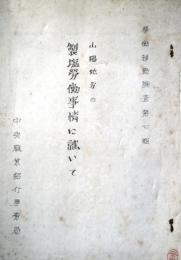 労働移動調査第七輯
山陽地方の
製塩労働事情に就いて
中央職業紹介事務局